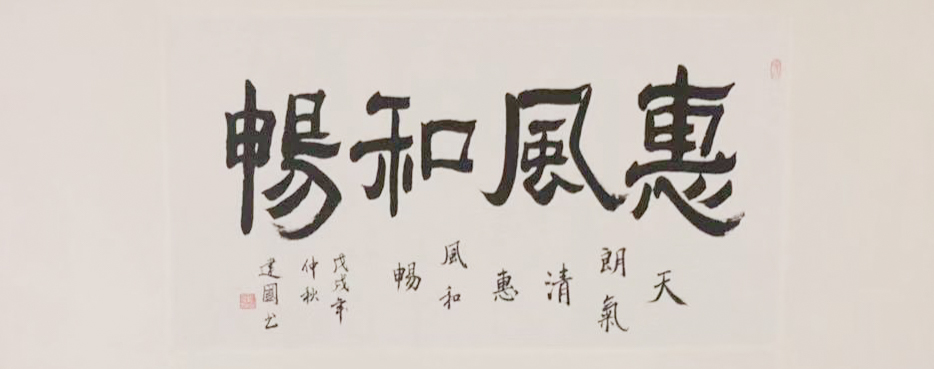 惠風和暢
天
朗氣
清
惠
風和
暢
戊戌年
仲秋
建國书